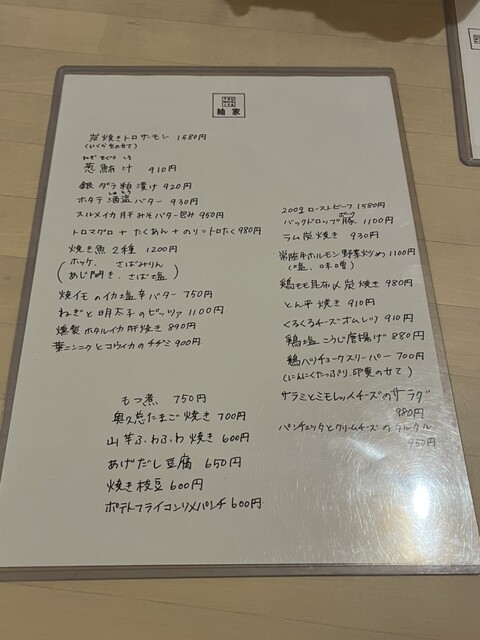 紬家
炭焼きトロサーモン 1580円
(いくらのせて)
ねぎ まぐろ じる
葱鮪汁 910円
銀ダラ粕漬け 920円
しゅとう
ホタテ酒盗バター 930円
スルメイカ肝みそバター包み 950円
トロマグロ+たくあん+のり=トロたく 980円
焼き魚2種 1200円
(ホッケ、さばみりん
あじ開き、さば塩)
焼イモのイカ塩辛バター 750円
ねぎと明太子のピッツァ 1100円
燻製ホタルイカ肝焼き 890円
葉ニンニクとコウイカのチヂミ 900円
もつ煮 750円
奥久慈たまご焼き 700円
山芋ふわふわ焼き 600円
あげだし豆腐 650円
焼き枝豆 600円
ポテトフライコンソメパンチ 600円
200gローストビーフ 1580円
ポーク
バックドロップ豚 1100円
ラム炭焼き 930円
常陸牛ホルモン野菜炒め 1100円
(塩、味噌)
鶏モモ昆布〆炭焼き 980円
とん平焼き 910円
くるくるチーズオムレツ 910円
鶏塩こうじ唐揚げ 880円
鶏ハツチョークスリーパー 700円
(にんにくたっぷり、卵黄のせて)
サラミとミモレットチーズのサラダ
980円
パンチェッタとクリームチーズの
950円